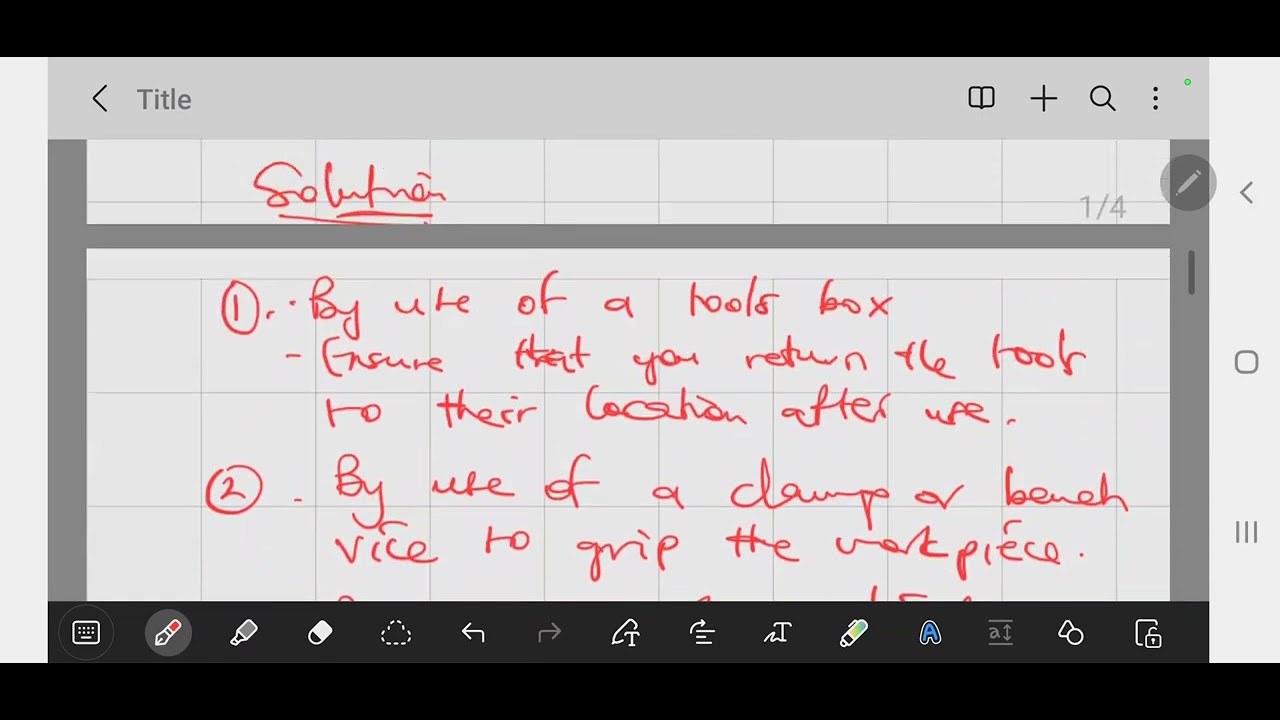 Title
Solution
1/4
①. . By use of a tools box
- Ensure that you return the tools
to their location after use.
② . By use of a clamp or bench
vice to grip the workpiece.